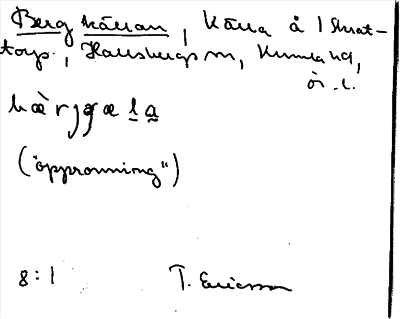 Berg källan, Källa å 1 Skrat-
torp., Hallsbergs sn, Kumla hd,
ör. l.
bærjæla
("opprönning")
8:1 T. Ericsson